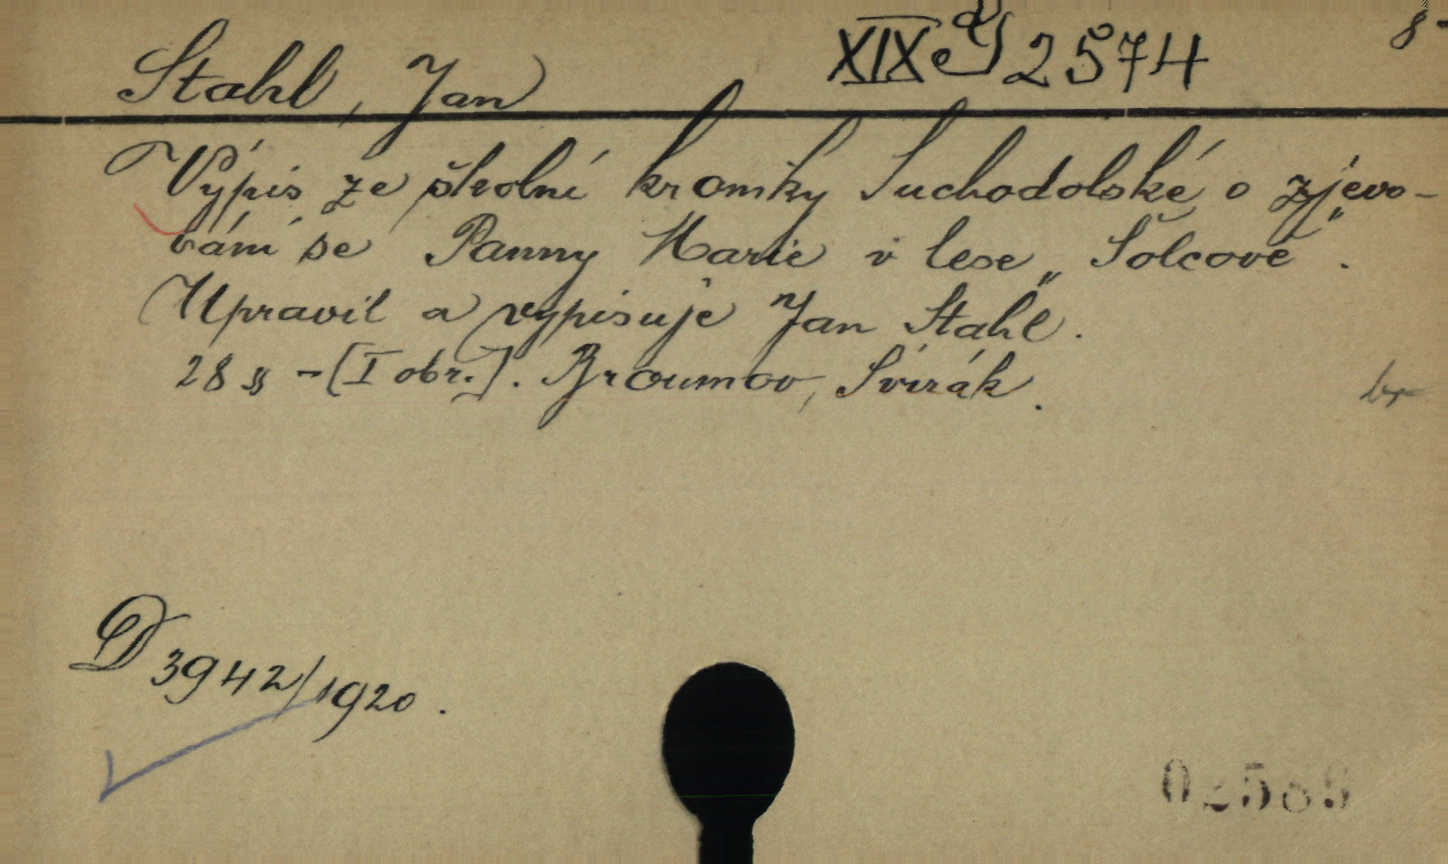 XIX g d 2574
8°
Stahl, Jan
Výpis ze školní kroniky Suchodolské o zjevo-
vání se Panny Marie v lese „Šolcově".
Upravil a vypisuje Jan Stahl.
28 s - [I obr.]. Broumov, Svirák.
D 3942/1920.